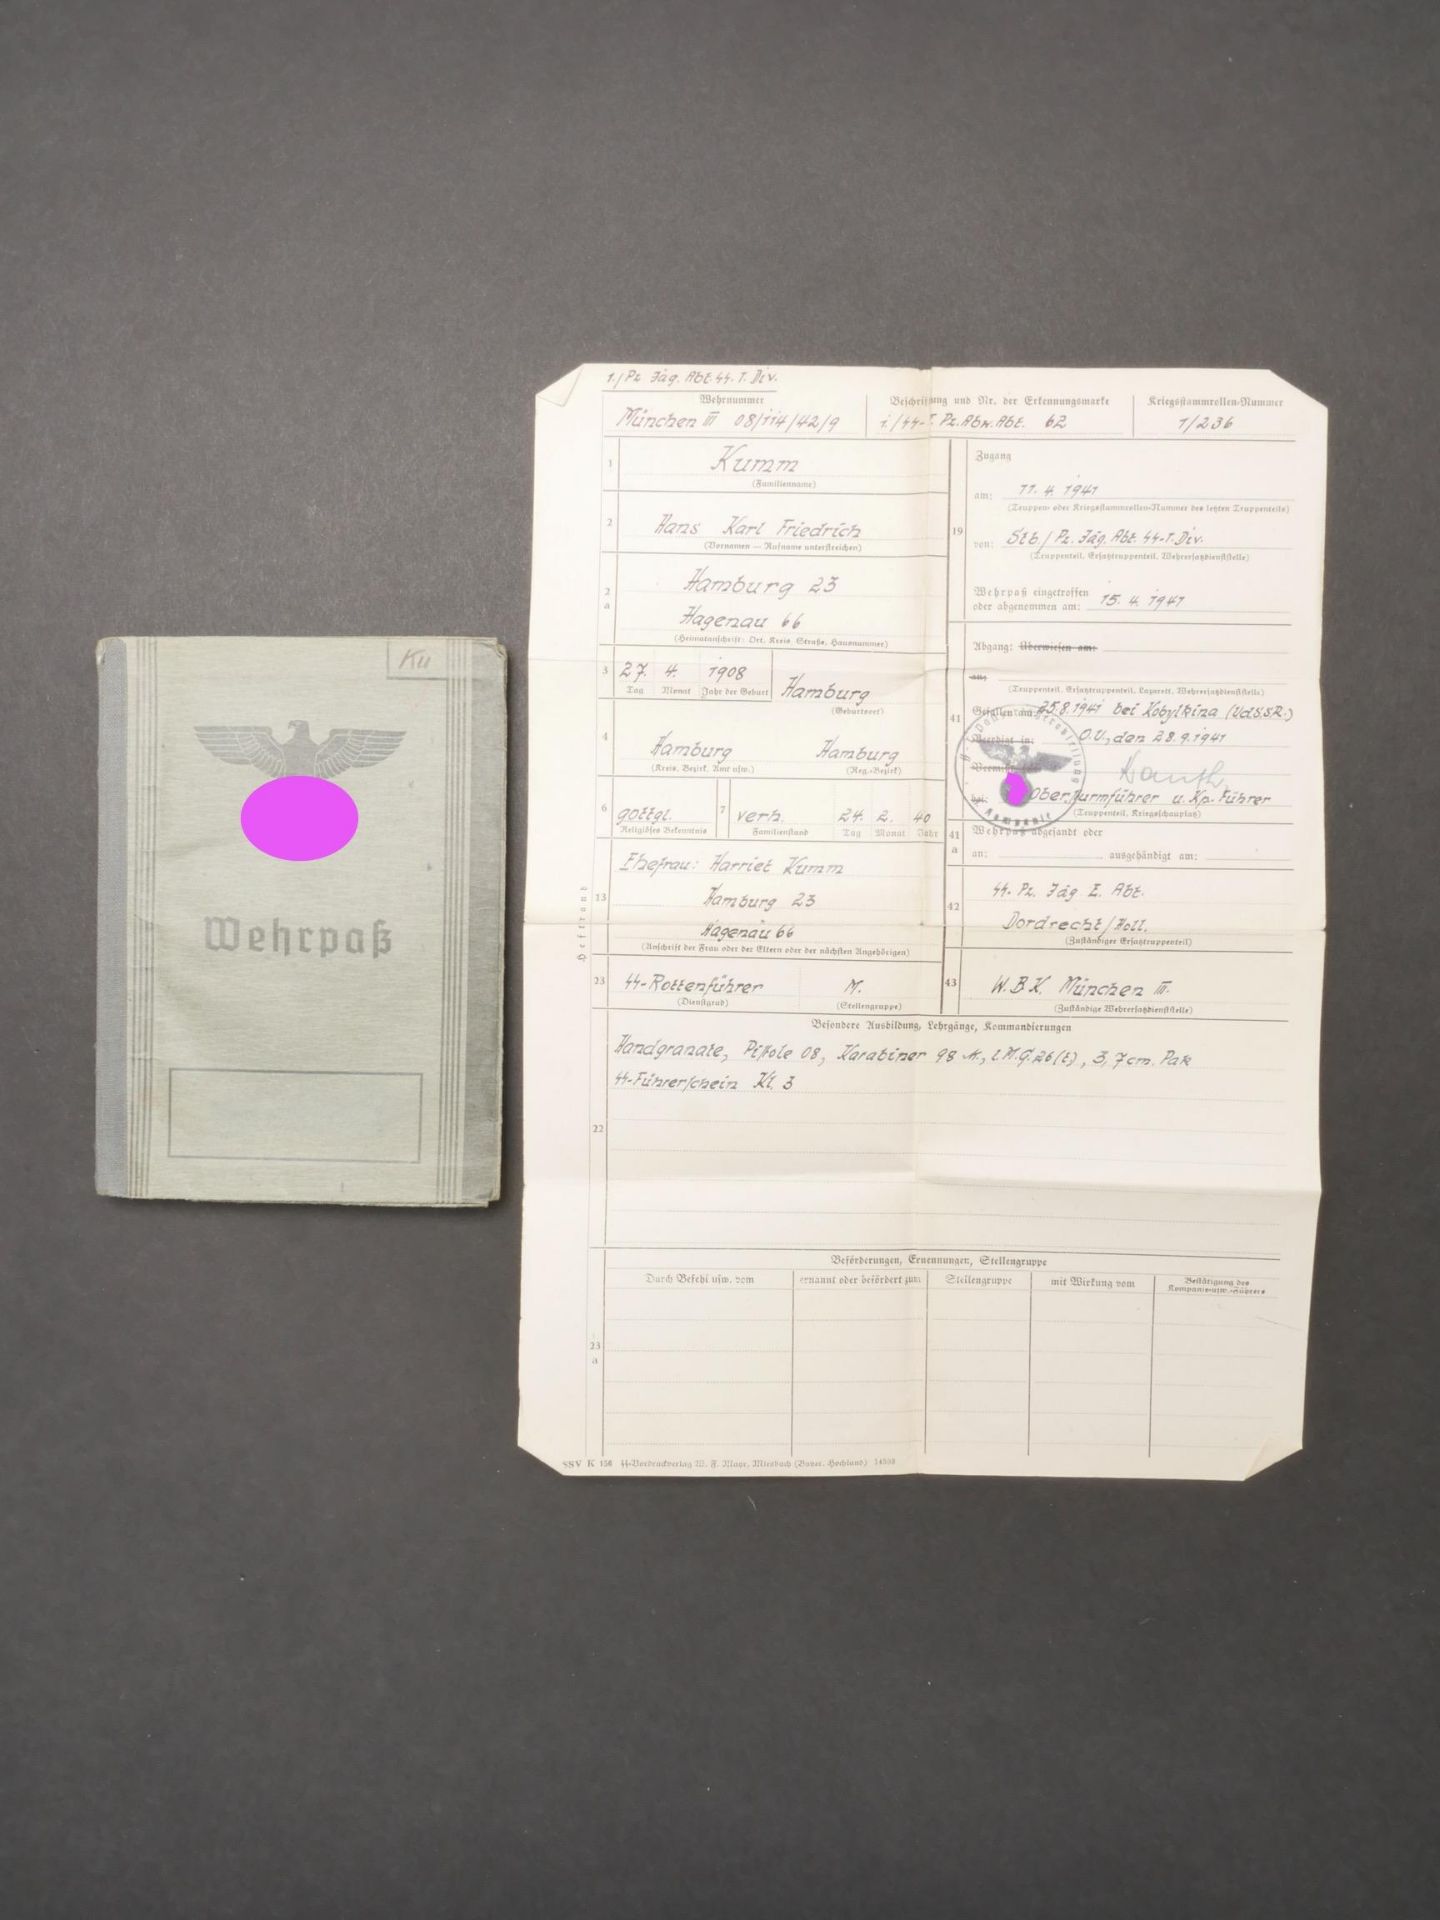 Ku
Wehrpaß
1./Pz. Jäg. Abt. SS-T. Div.
Wehrnummer
München III 08/114/42/9
Beschriftung und Nr. der Erkennungsmarke
1./SS-T. Pz. Abw. Abt. 62
Kriegsstammrollen-Nummer
1/236
1
Kumm
(Familienname)
2
Hans Karl Friedrich
(Vornamen — Rufname unterstreichen)
2
a
Hamburg 23
Hagenau 66
(Heimatanschrift: Ort, Kreis, Straße, Hausnummer)
3
27. 4. 1908
Tag Monat Jahr der Geburt
Hamburg
(Geburtsort)
4
Hamburg Hamburg
(Kreis, Bezirk, Amt usw.) (Reg.-Bezirk)
6
gottgl.
Religiöses Bekenntnis
7
verh. 24. 2. 40
Familienstand Tag Monat Jahr
13
Ehefrau: Harriet Kumm
Hamburg 23
Hagenau 66
(Anschrift der Frau oder der Eltern oder der nächsten Angehörigen)
Heftrand
23
SS-Rottenführer M.
(Dienstgrad) (Stellengruppe)
19
Zugang
am: 11. 4. 1941
(Truppen- oder Kriegsstammrollen-Nummer des letzten Truppenteils)
von: Stb./Pz. Jäg. Abt. SS-T. Div.
(Truppenteil, Ersatztruppenteil, Wehrersatzdienststelle)
Wehrpaß eingetroffen
oder abgenommen am: 15. 4. 1941
41
Abgang: Überwiesen am:
an:
(Truppenteil, Ersatztruppenteil, Lazarett, Wehrersatzdienststelle)
Gefallen am: 25.8.1941 bei Kobylkina (UdSSR.)
Beerdigt in: O.U., den 28.9.1941
Vermißt
bei: Obersturmführer u. Kp.-Führer
(Truppenteil, Kriegsschauplatz)
Kompanie
41
a
Wehrpaß abgesandt oder
an: ausgehändigt am:
42
SS-Pz. Jäg. E. Abt.
Dordrecht/Holl.
(Zuständiger Ersatztruppenteil)
43
W.B.K. München III.
(Zuständige Wehrersatzdienststelle)
Besondere Ausbildung, Lehrgänge, Kommandierungen
22
Handgranate, Pistole 08, Karabiner 98 k., l.M.G. 26(t), 3,7 cm. Pak
SS-Führerschein Kl. 3
Beförderungen, Ernennungen, Stellengruppe
Durch Befehl usw. vom
ernannt oder befördert zum
Stellengruppe
mit Wirkung vom
Bestätigung des
Kompanie-usw.-Führers
23
a
SSV K 156 SS-Vordruckverlag W. F. Mayr, Miesbach (Bayer. Hochland) 14593